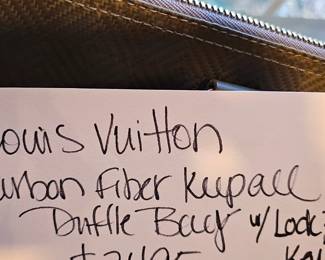 ouis Vuitton
arbon Fiber Keepall
Duffle Bag w/ Lock &
$2495 Key